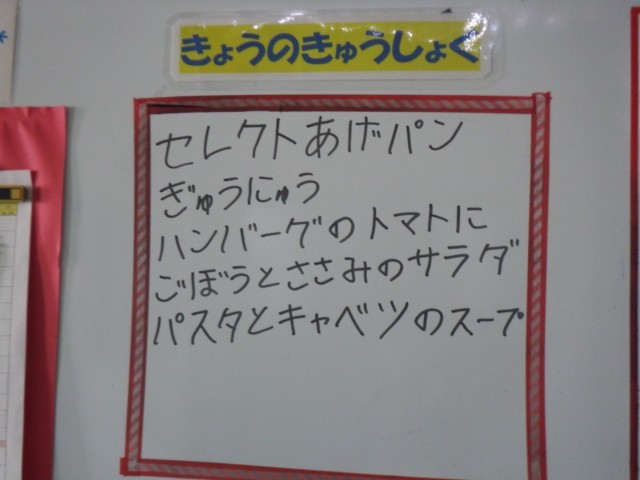 きょうのきゅうしょく
セレクトあげパン
ぎゅうにゅう
ハンバーグのトマトに
ごぼうとささみのサラダ
パスタとキャベツのスープ